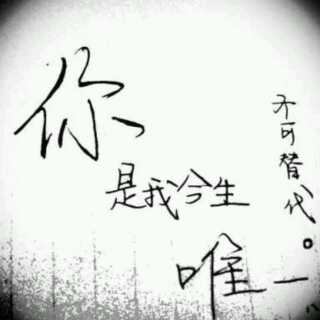 你
是我今生
唯一
不可替代。